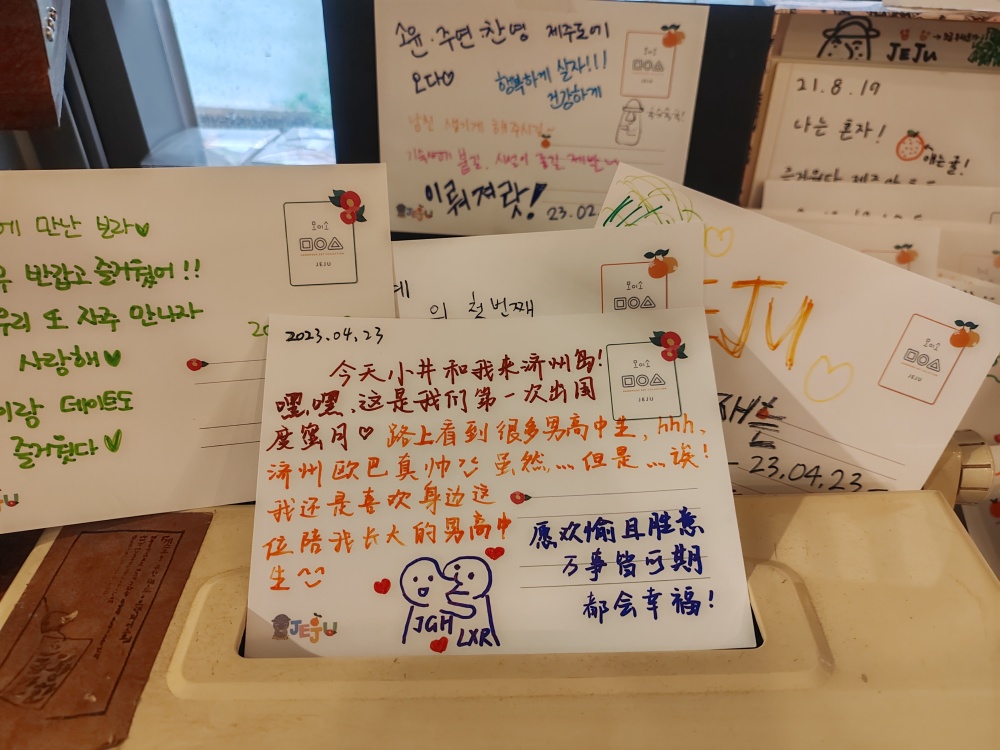 소윤·주연·찬영 제주도에
오다♡
행복하게 살자!!!
건강하게
이뤄져랏!
JEJU
23.02
모이소
JEJU
JEJU
21.8.19
나는 혼자!
얘는귤!
에 만난 보라♥
반갑고 즐거웠어!!
우리 또 자주 만나자
사랑해♥
이랑 데이트도
즐거웠다♥
모이소
JEJU
의 첫번째
모이소
JEJU
모이소
JEJU
23.04.23
2023.04.23
今天小井和我来济州岛!
嘿嘿,这是我们第一次出国
度蜜月♡路上看到很多男高中生,hhh,
济州欧巴真帅^^虽然……但是……诶!
我还是喜欢身边这
位陪我长大的男高中
生^^
모이소
JEJU
愿欢愉且胜意
万事皆可期
都会幸福!
JGH
LXR
JEJU